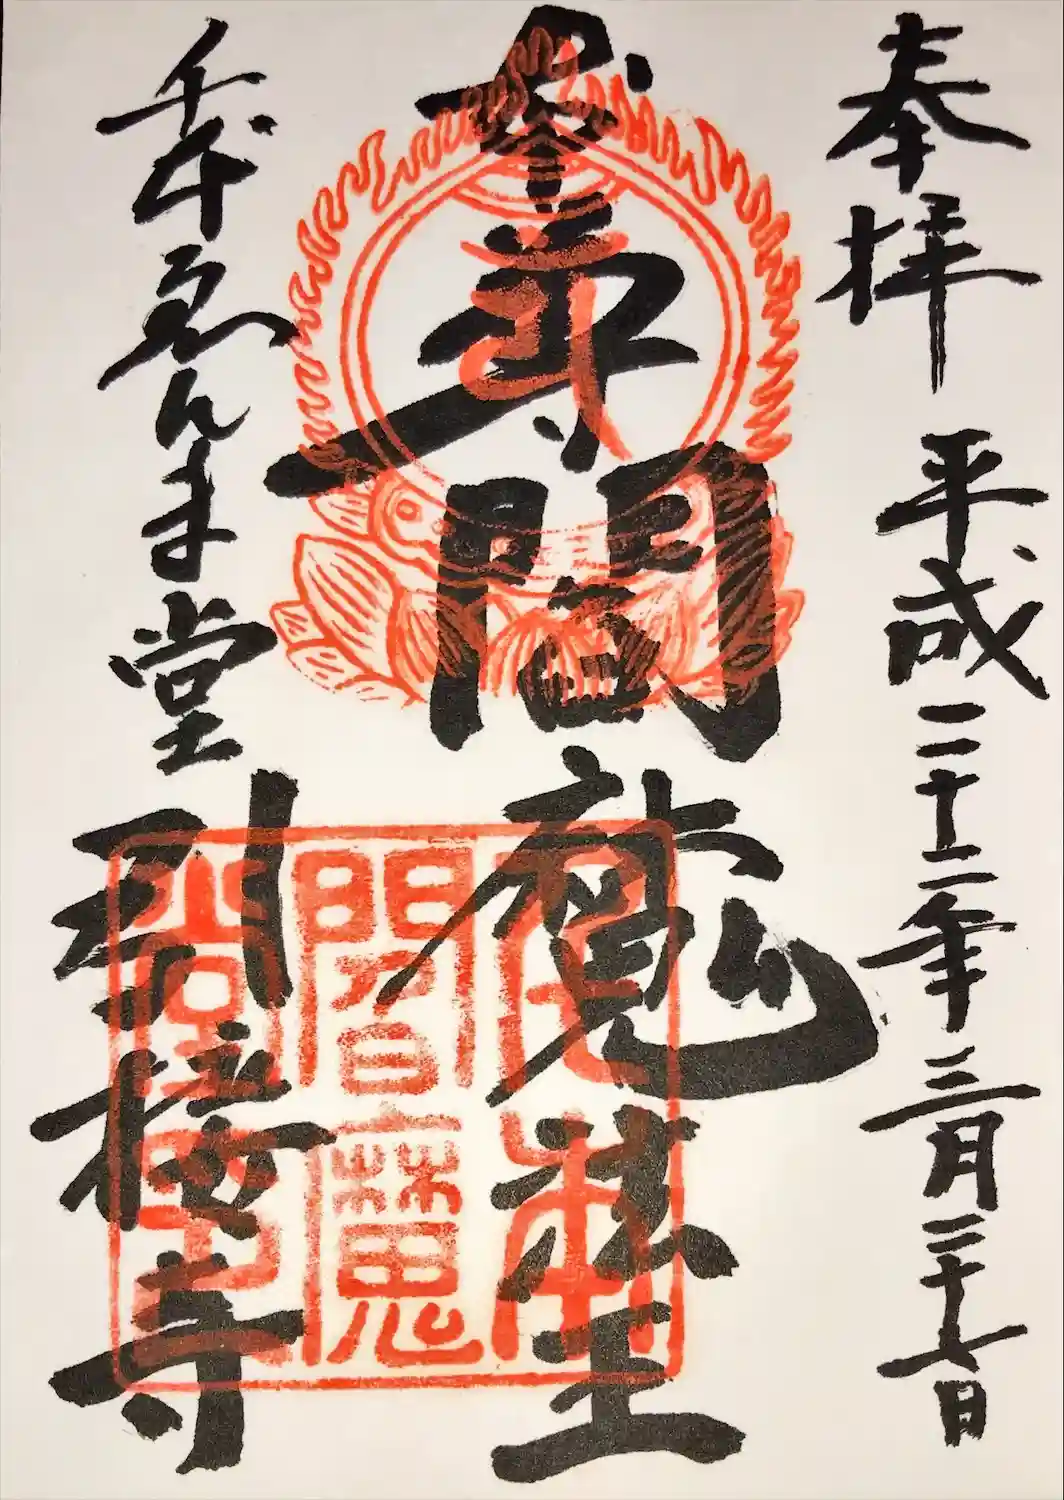 奉拝 平成二十二年三月二十七日
本尊 閻魔法王
千本ゑんま堂 引接寺
千本
閻魔
堂印